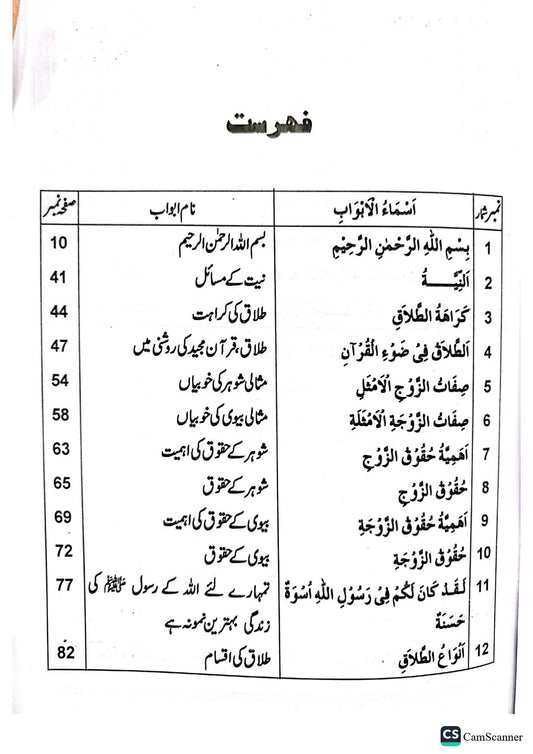 فهرست
نمبر شمار اَسْمَاءُ الْاَبْوَابِ نام ابواب صفحہ نمبر
1 بِسْمِ اللّٰهِ الرَّحْمٰنِ الرَّحِيْمِ بسم اللہ الرحمٰن الرحیم 10
2 اَلنِّيَّـــــةُ نیت کے مسائل 41
3 كَرَاهَةُ الطَّلَاقِ طلاق کی کراہت 44
4 اَلطَّلَاقُ فِيْ ضَوْءِ الْقُرْآنِ طلاق، قرآن مجید کی روشنی میں 47
5 صِفَاتُ الزَّوْجِ الْاَمْثَلِ مثالی شوہر کی خوبیاں 54
6 صِفَاتُ الزَّوْجَةِ الْاَمْثَلَةِ مثالی بیوی کی خوبیاں 58
7 اَهَمِيَّةُ حُقُوْقِ الزَّوْجِ شوہر کے حقوق کی اہمیت 63
8 حُقُوْقُ الزَّوْجِ شوہر کے حقوق 65
9 اَهَمِيَّةُ حُقُوْقِ الزَّوْجَةِ بیوی کے حقوق کی اہمیت 69
10 حُقُوْقُ الزَّوْجَةِ بیوی کے حقوق 72
11 لَقَدْ كَانَ لَكُمْ فِيْ رَسُوْلِ اللّٰهِ اُسْوَةٌ تمہارے لئے اللہ کے رسول ﷺ کی 77
حَسَنَةٌ زندگی بہترین نمونہ ہے
12 اَنْوَاعُ الطَّلَاقِ طلاق کی اقسام 82
CS CamScanner